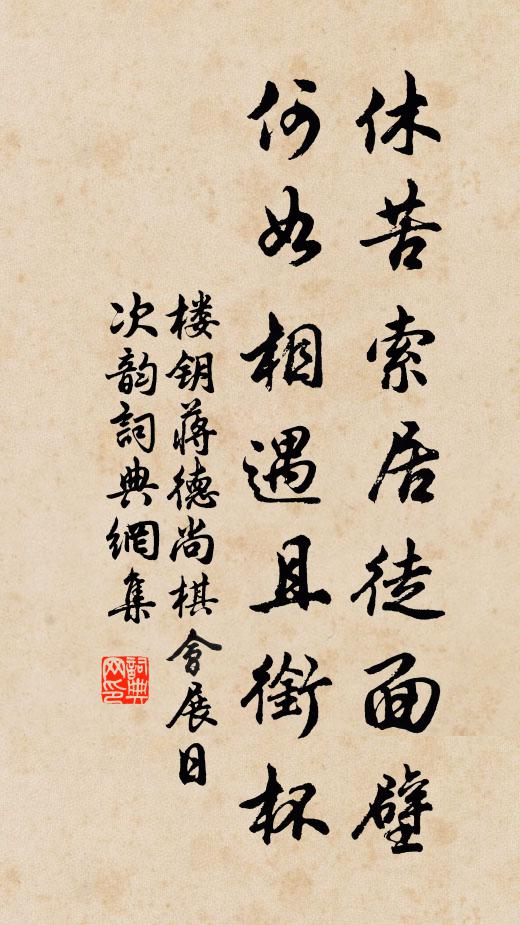 休苦索居徒面壁
何如相遇且衔杯
楼钥蒋德尚棋会展日
次韵詞典網集
詞典网印